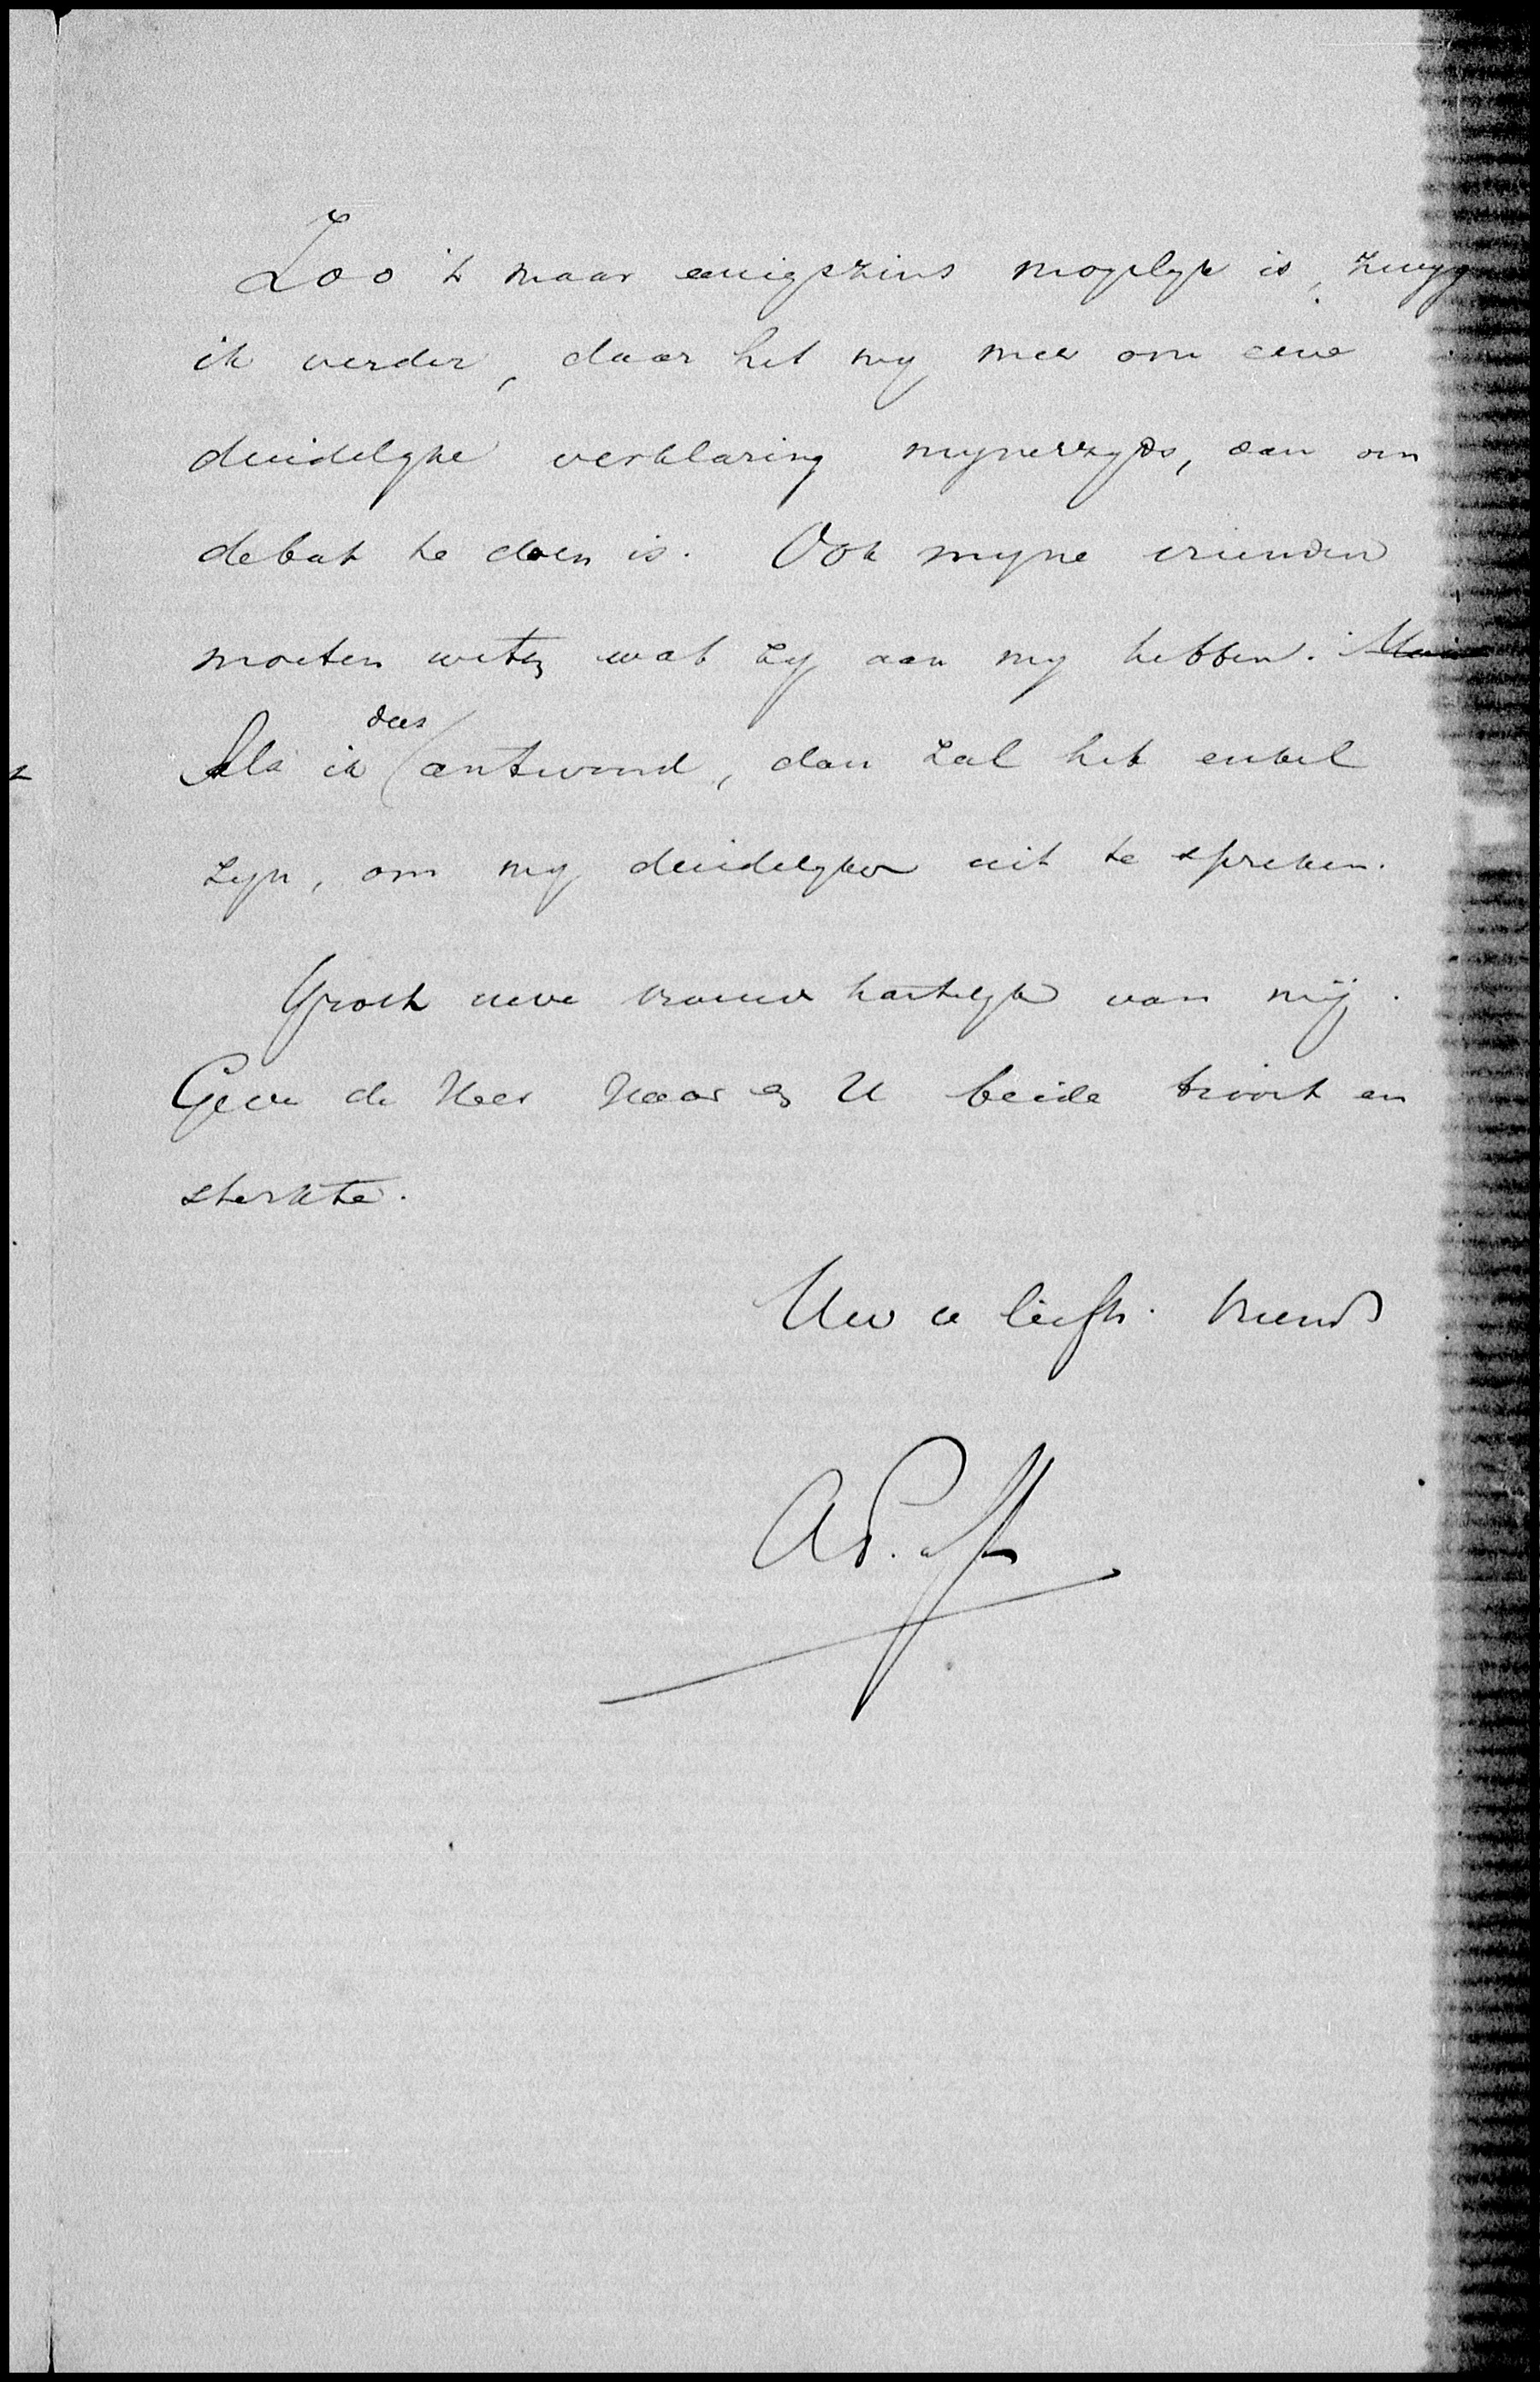 Zoo 't maar eenigszins mogelyk is, zwyg
ik verder, daar het my meer om eene
duidelyke verklaring mynerzyds, dan om
debat te doen is. Ook myne vrienden
moeten weten wat zy aan my hebben.
Als ik dus antwoord, dan zal het enkel
zyn, om my duidelyker uit te spreken.
Groet uwe vrouw hartelyk van mij.
Geve de Heer haar en U beide troost en
sterkte.
Uw liefh. vriend